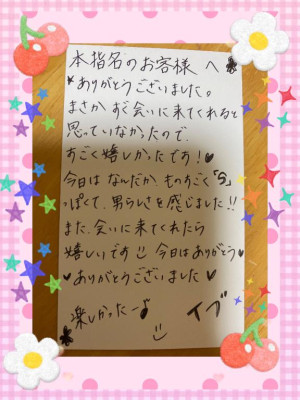 本指名のお客様へ
ありがとうございました。
まさか すぐ会いに来てくれると
思っていなかったので、
すごく嬉しかったです!
今日は なんだか ものすごく「S」
っぽくて、男らしさを感じました!!
また、会いに来てくれたら
嬉しいです 今日はありがとう
ありがとうございました
楽しかったー♪ イブ